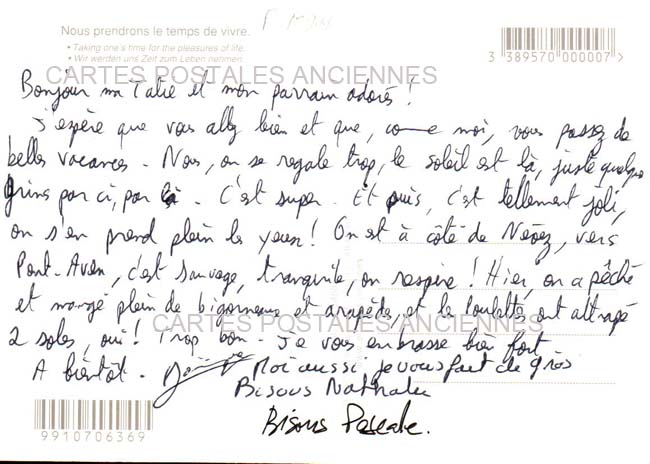 Nous prendrons le temps de vivre.
• Taking one's time for the pleasures of life.
• Wir werden uns Zeit zum Leben nehmen.
3 389570 000007 >
CARTES POSTALES ANCIENNES
Bonjour ma Tatie et mon parrain adorés !
J'espère que vous allez bien et que, comme moi, vous passez de
belles vacances - Nous, on se regale trop, le soleil est là, juste quelques
grins par ci, par là. C'est super. Et puis, c'est tellement joli,
on s'en prend plein les yeux ! On est à côté de Névez, vers
Pont-Aven, c'est sauvage, tranquile, on respire ! Hier, on a pêché
et mangé plein de bigorneaux et arapèdes, et les loulettes ont attrapé
CARTES POSTALES ANCIENNES
2 soles, oui ! Trop bon - Je vous embrasse bien fort
A bientôt.
Moi aussi je vous fait de gros
Bisous Nathalie
Bisous Pascale.
9910706369